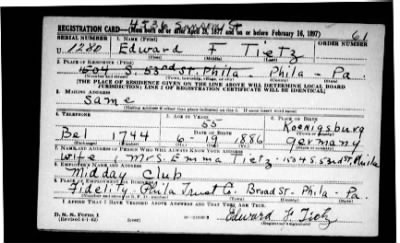 REGISTRATION CARD—(Men born on or after April 28, 1877 and on or before February 16, 1897)
SERIAL NUMBER 1. NAME (Print) ORDER NUMBER
U 1280 Edward F Tietz 61
(First) (Middle) (Last)
2. PLACE OF RESIDENCE (Print)
1504 S. 53rd St. Phila - Phila - Pa.
[THE PLACE OF RESIDENCE GIVEN ON THE LINE ABOVE WILL DETERMINE LOCAL BOARD
JURISDICTION; LINE 2 OF REGISTRATION CERTIFICATE WILL BE IDENTICAL]
3. MAILING ADDRESS
Same
[Mailing address if other than place indicated on line 2. If same insert word same]
4. TELEPHONE 5. AGE IN YEARS 6. PLACE OF BIRTH
55 Koenigsburg
DATE OF BIRTH
Bel 1744 6-19 1886 Germany
7. NAME AND ADDRESS OF PERSON WHO WILL ALWAYS KNOW YOUR ADDRESS
Wife, Mrs. Emma Tietz - 1504 S 53rd St Phila
8. EMPLOYER'S NAME AND ADDRESS
Midday Club
9. PLACE OF EMPLOYMENT OR BUSINESS
Fidelity - Phila Trust C. Broad St - Phila - Pa.
I AFFIRM THAT I HAVE VERIFIED ABOVE ANSWERS AND THAT THEY ARE TRUE.
D. S. S. Form 1
(Revised 4-1-42) Edward F Tietz